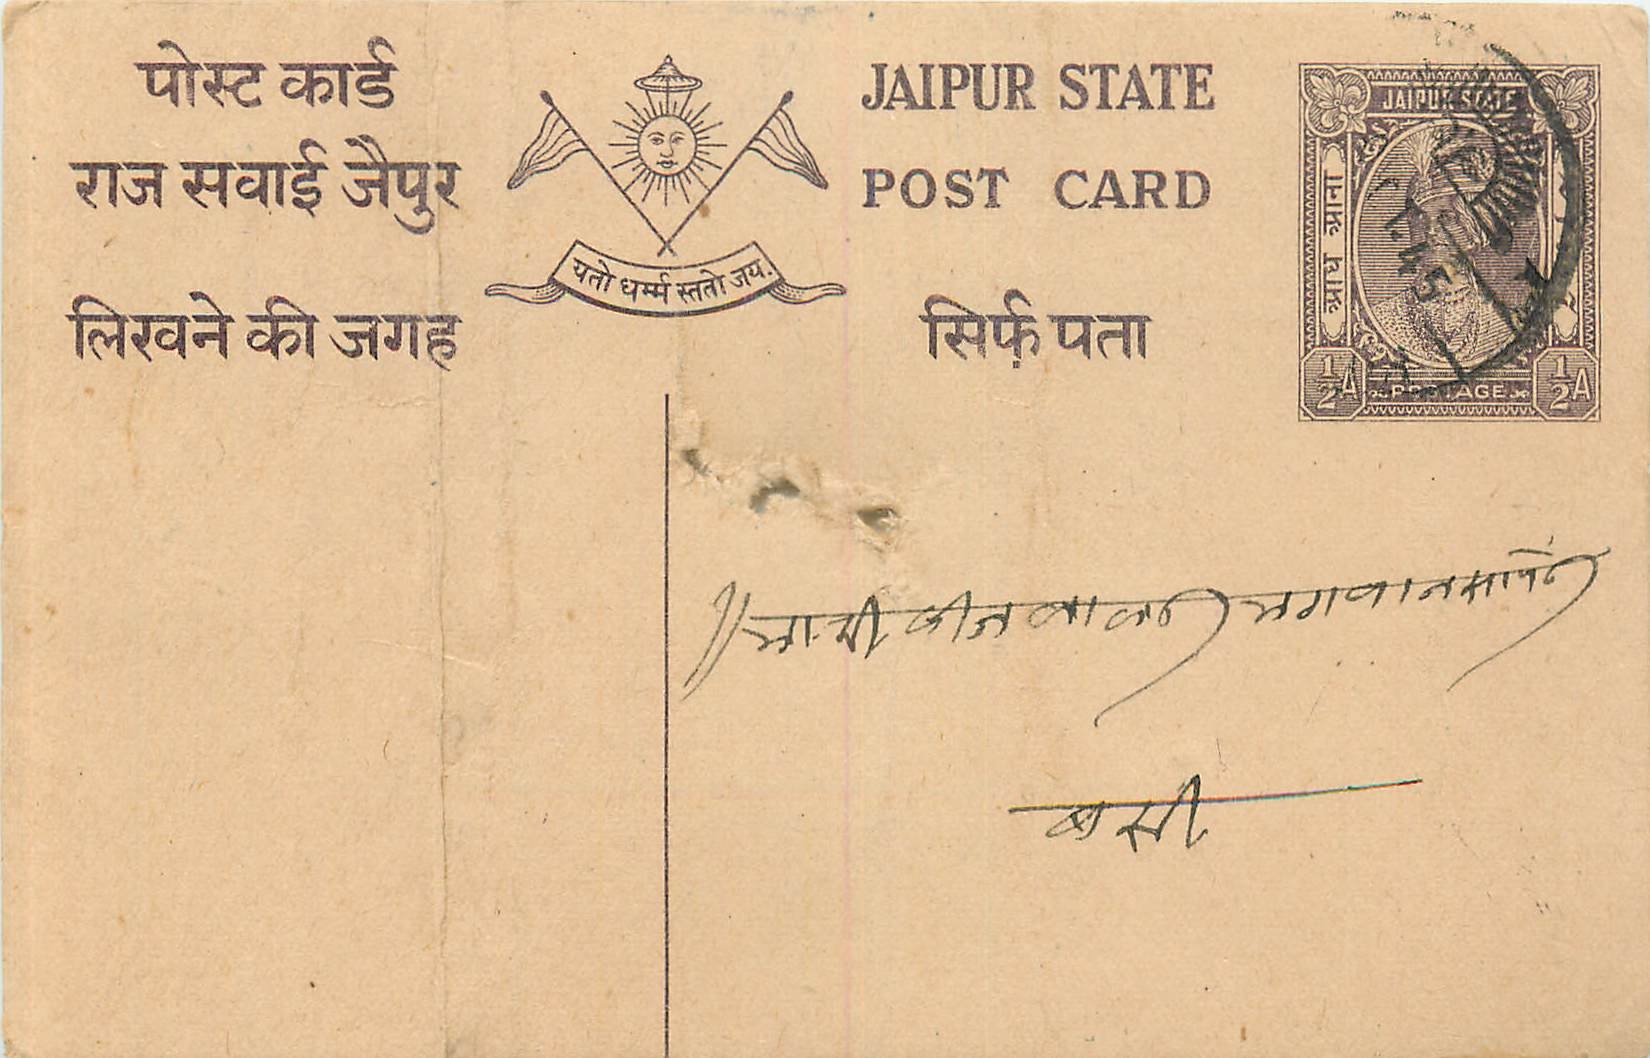 पोस्ट कार्ड
राज सवाई जैपुर
लिखने की जगह
यतो धर्म्म स्ततो जय.
JAIPUR STATE
POST CARD
सिर्फ़ पता
JAIPUR STATE
आध आना
½A POSTAGE ½A
45
बसी